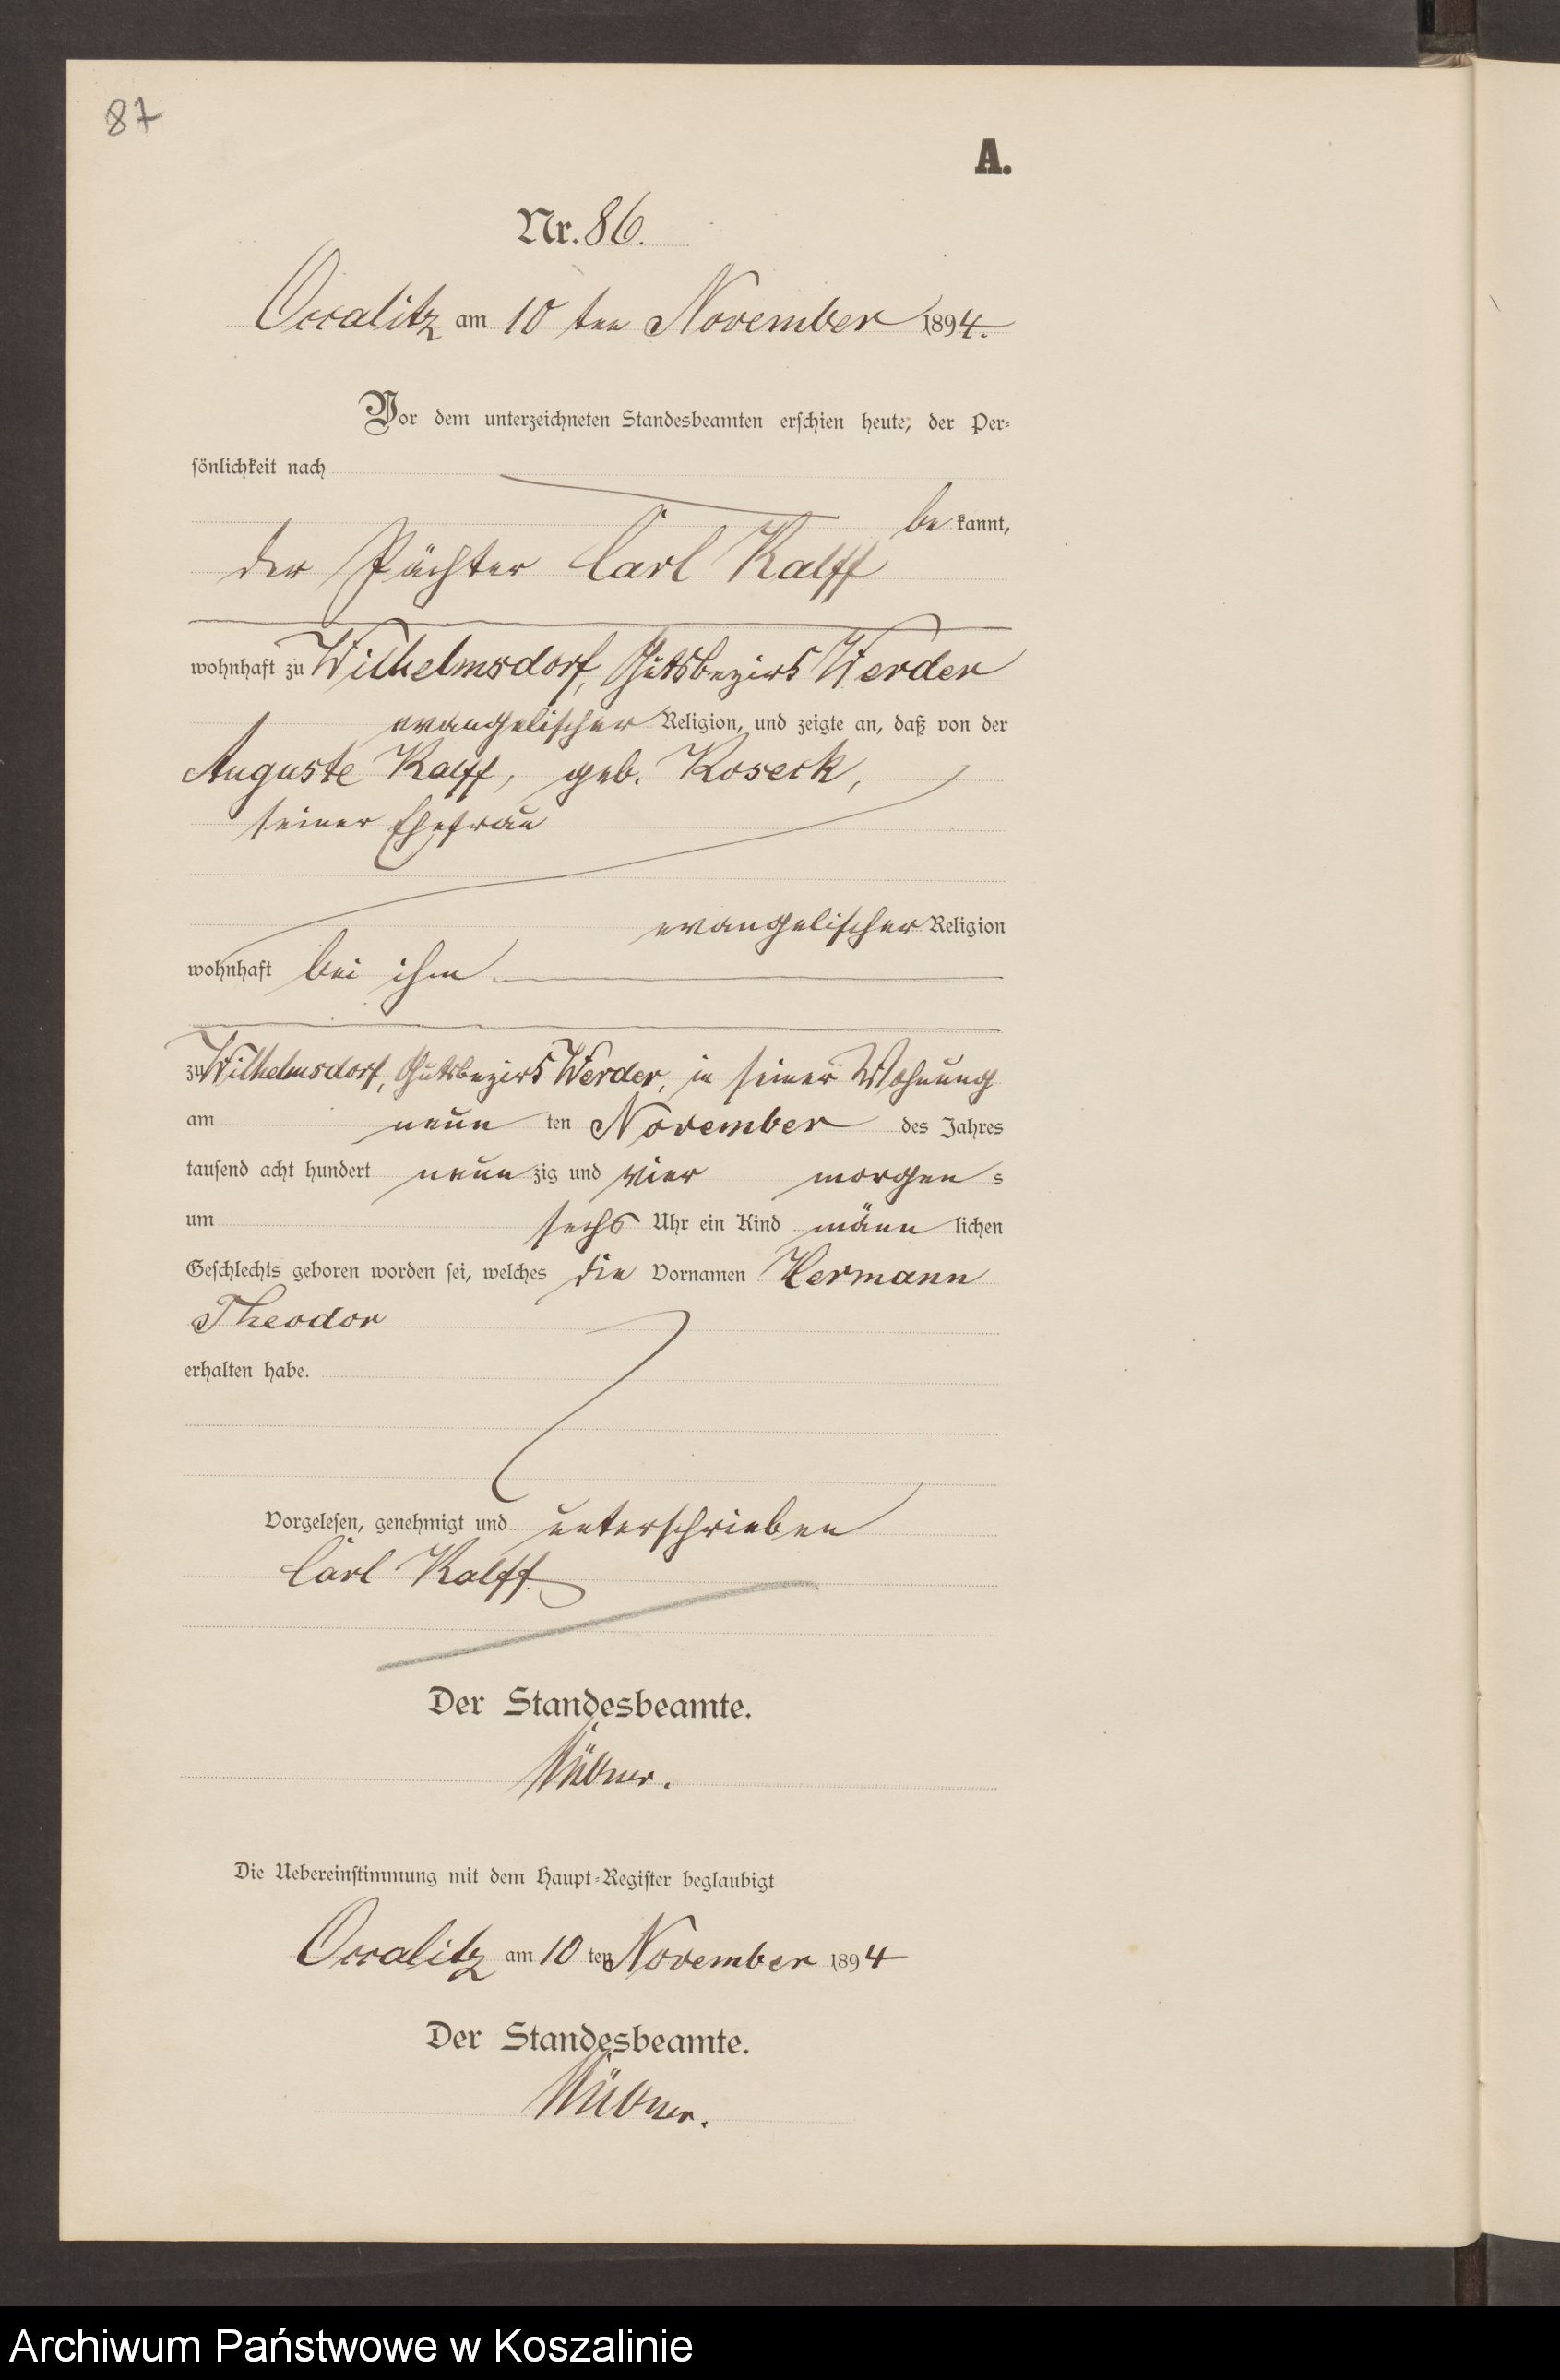 87
A.
Nr. 86.
Occalitz am 10 ten November 1894.
Vor dem unterzeichneten Standesbeamten erschien heute, der Per-
sönlichkeit nach
be kannt,
der Pächter Carl Kalff
wohnhaft zu Wilhelmsdorf, Gutsbezirk Werder
evangelischer Religion, und zeigte an, daß von der
Auguste Kalff, geb. Koseck,
seiner Ehefrau
evangelischer Religion
wohnhaft bei ihm
zu Wilhelmsdorf, Gutsbezirk Werder, in seiner Wohnung
am neun ten November des Jahres
tausend acht hundert neun zig und vier morgen s
um sechs Uhr ein Kind männ lichen
Geschlechts geboren worden sei, welches die Vornamen Hermann
Theodor
erhalten habe.
Vorgelesen, genehmigt und unterschrieben
Carl Kalff
Der Standesbeamte.
Die Uebereinstimmung mit dem Haupt-Register beglaubigt
Occalitz am 10 ten November 1894
Der Standesbeamte.
Archiwum Państwowe w Koszalinie